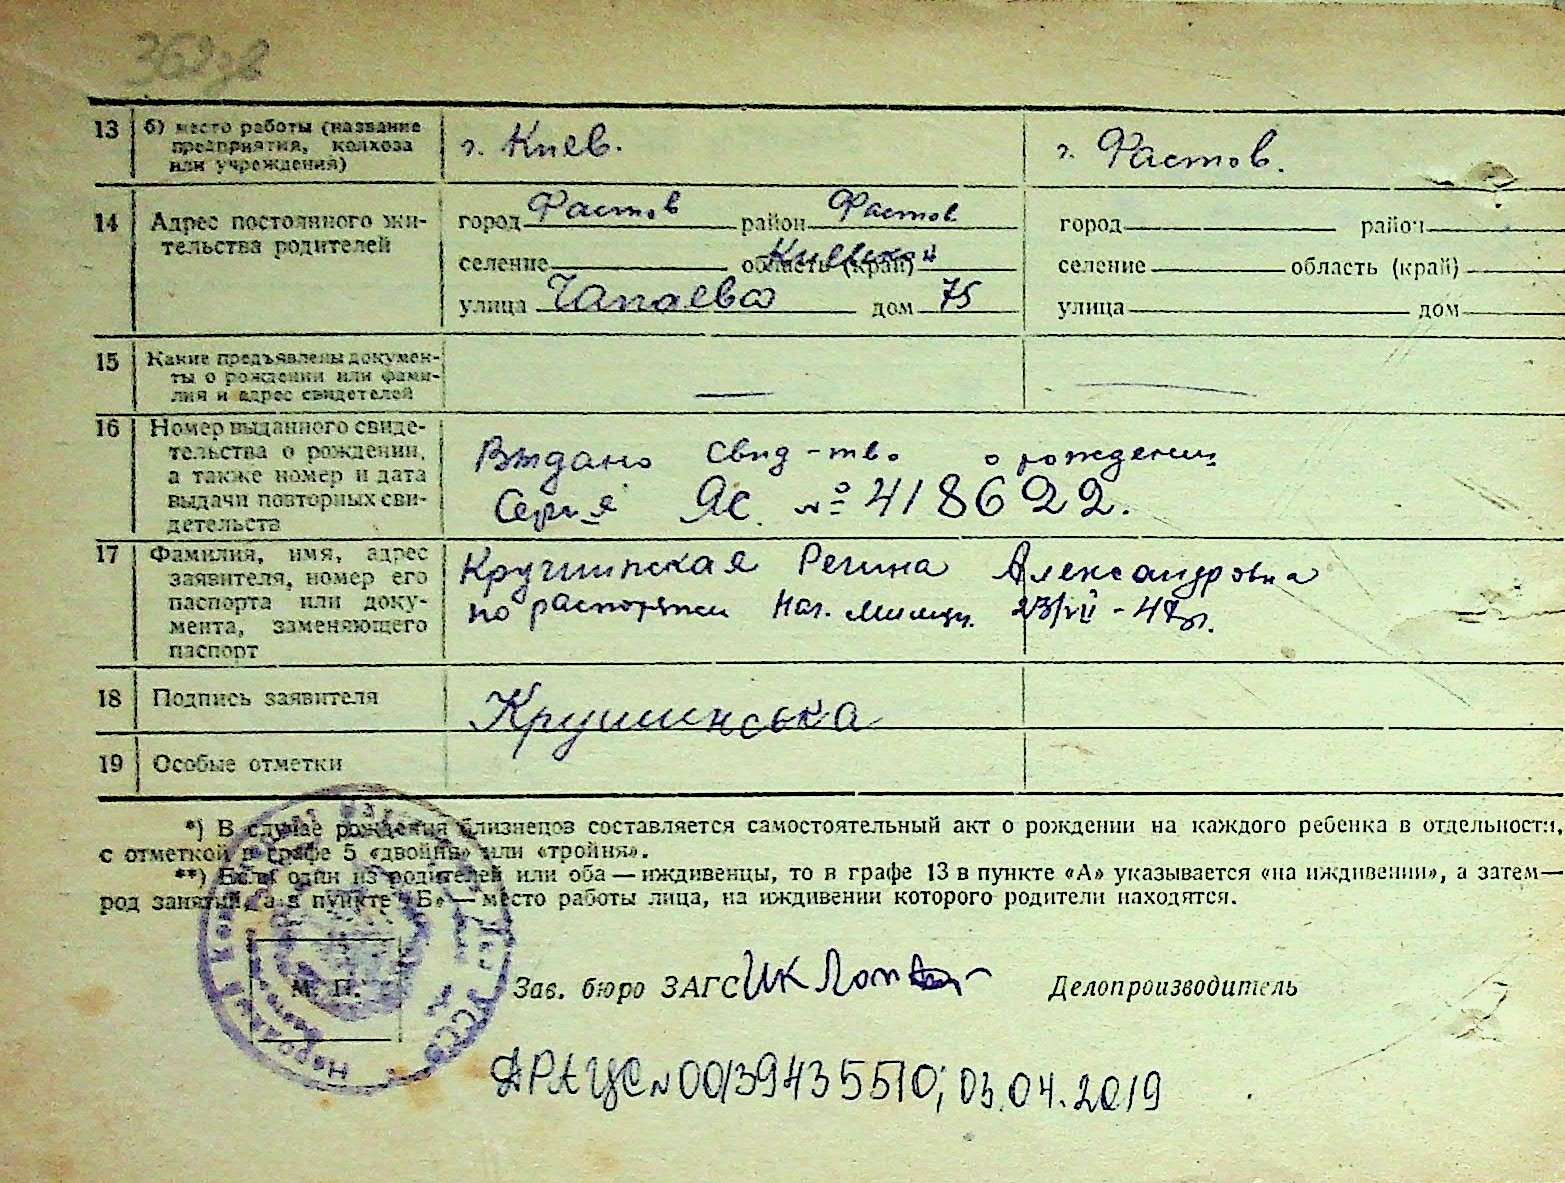 362зв
13 б) место работы (название предприятия, колхоза или учреждения) г. Киев. г. Фастов.
14 Адрес постоянного жительства родителей
город Фастов район Фастов город район
селение область (край) Киевской селение область (край)
улица Чапаева дом 75 улица дом
15 Какие предъявлены документы о рождении или фамилия и адрес свидетелей — —
16 Номер выданного свидетельства о рождении, а также номер и дата выдачи повторных свидетельств
Выдано свид-тво о рождении
Серия ЯС №418622.
17 Фамилия, имя, адрес заявителя, номер его паспорта или документа, заменяющего паспорт
Крушинская Регина Александровна
по распоряжен Нач. Милиц. 23/VII-47г.
18 Подпись заявителя Крушинська
19 Особые отметки
*) В случае рождения близнецов составляется самостоятельный акт о рождении на каждого ребенка в отдельности,
с отметкой в графе 5 «двойня» или «тройня».
**) Если один из родителей или оба — иждивенцы, то в графе 13 в пункте «А» указывается «на иждивении», а затем—
род занятий, а в пункте «Б» — место работы лица, на иждивении которого родители находятся.
М. П.
Зав. бюро ЗАГС Делопроизводитель
ДРАЦС №00139435510; 03.04.2019